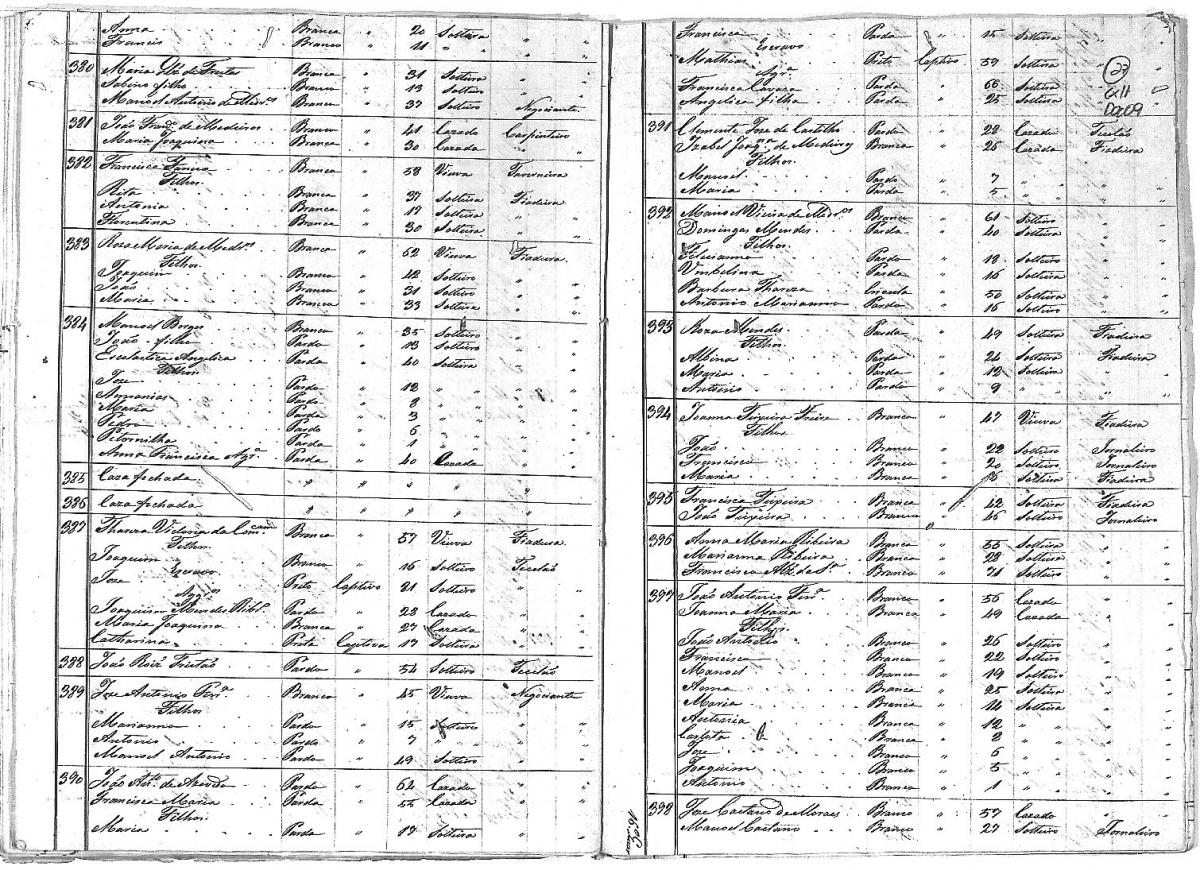 Anna Branca " 20 Solteira " "
Francisco Branco " 11 " " "
380 Maria de Freita Branca " 31 Solteira " "
Sabino filho Branco " 13 Solteiro " "
Manoel Antonio de Branco " 37 Solteiro Negociante
381 João Franco de Medeiros Branco " 41 Cazado Carpinteiro
Maria Joaquina Branca " 30 Cazada " "
382 Francisca Branca " 58 Viuva Taverneira
Filhos
Rita Branca " 37 Solteira Fiadeira
Antonia Branca " 17 Solteira "
Florentina Branca " 30 Solteira "
383 Roza Maria de Medros Branca " 62 Viuva Fiadeira
Filhos
Joaquim Branco " 42 Solteiro "
João Branco " 31 Solteiro "
Maria Branca " 33 Solteira "
384 Manoel Borges Branco " 35 Solteiro "
João filho Pardo " 13 Solteiro "
Escolastica Angelica Parda " 40 Solteira "
Filhos
Joze Pardo " 12 " " "
Ananias Pardo " 8 " " "
Maria Parda " 3 " " "
Pedro Pardo " 6 " " "
Petornilha Parda " 1 " " "
Anna Francisca Agr.ª Parda " 40 Cazada "
385 Caza fechada " " " " "
386 Caza fechada " " " " "
387 Thereza Victoria da Concam Branca " 57 Viuva Fiadeira
Filhos
Joaquim Branco " 16 Solteiro Tecelão
Escravo
Joze Preto Captivo 21 Solteiro "
Aggos
Joaquim Mendes Ribr.º Pardo " 28 Cazado "
Maria Joaquina Branca " 27 Cazada "
Catharina Preta Captiva 17 Solteira "
388 João Roiz Pardo " 54 Solteiro Tecelão
389 Joze Antonio Per.ª Branco " 45 Viuvo Negociante
Filhos
Marianna Parda " 15 Solteira "
Antonio Pardo " 7 " " "
Manoel Antonio Pardo " 49 Solteiro "
390 João Ant.º de Azevedo Pardo " 64 Cazado "
Francisca Maria Parda " 55 Cazada "
Filhos
Maria Parda " 17 Solteira "
Francisca Parda " 15 Solteira "
Escravo
Mathias Preto Captivo 59 Solteiro "
Agr.ª
Francisca Parda " 66 Solteira "
Angelica filha Parda " 25 Solteira "
27
GII
D009
391 Clemente Joze de Castilho Pardo " 28 Cazado Tecelão
Izabel Joaq.na de Medeiros Branca " 25 Cazada Fiadeira
Filhos
Manoel Pardo " 7 " "
Maria Parda " 5 " "
392 Manoel Vieira de Medr.os Branco " 61 Solteiro "
Domingas Mendes Parda " 40 Solteira "
Filhos
Feliciano Pardo " 18 Solteiro "
Umbelina Parda " 16 Solteira "
Barbara Thereza Crioula " 50 Solteira "
Antonio Marianno Pardo " 16 Solteiro "
393 Roza Mendes Parda " 49 Solteira Fiadeira
Filhos
Albina Parda " 24 Solteira Fiadeira
Maria Parda " 12 Solteira "
Antonio Pardo " 9 " "
394 Joanna Teixeira Freire Branca " 47 Viuva Fiadeira
Filhos
João Branco " 22 Solteiro Jornaleiro
Francisco Branco " 20 Solteiro Jornaleiro
Maria Branca " 16 Solteira Fiadeira
395 Francisca Teixeira Branca " 42 Solteira Fiadeira
João Teixeira Branco " 45 Solteiro Jornaleiro
396 Anna Maria Ribeira Branca " 55 Solteira "
Marianna Ribeira Branca " 23 Solteira "
Francisco Branco " 71 Solteiro "
397 João Antonio Branco " 56 Cazado "
Joanna Maria Branca " 49 Cazada "
Filhos
João Antonio Branco " 26 Solteiro "
Francisco Branco " 22 Solteiro "
Manoel Branco " 19 Solteiro "
Anna Branca " 25 Solteira "
Maria Branca " 14 Solteira "
Antonia Branca " 12 " "
Carlota Branca " 8 " "
Joze Branco " 6 " "
Joaquim Branco " 5 " "
Antonio Branco " 1 " "
398 Joze Caetano de Moraes Branco " 57 Cazado
Manoel Caetano Branco " 27 Solteiro Jornaleiro